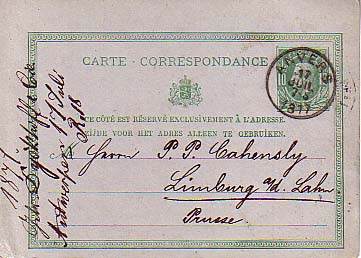 CARTE - CORRESPONDANCE
CE CÔTÉ EST RÉSERVÉ EXCLUSIVEMENT À L'ADRESSE.
ZIJDE VOOR HET ADRES ALLEEN TE GEBRUIKEN.
ANVERS
17
1877
Herrn P. P. Cahensly
Limburg a/d. Lahn
Prusse
1877.
Antwerpen 17 Juli